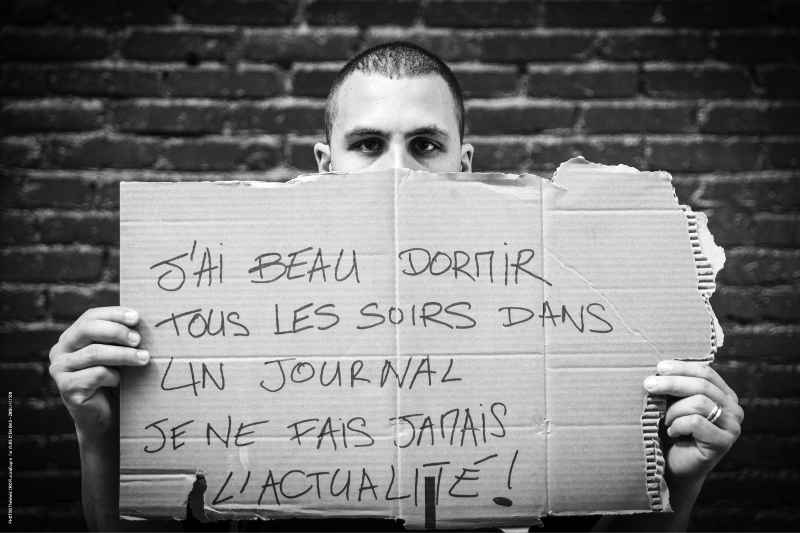 J'AI BEAU DORMIR
TOUS LES SOIRS DANS
UN JOURNAL
JE NE FAIS JAMAIS
L'ACTUALITÉ !